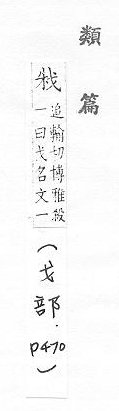 類篇
追輸切博雅殺
一曰戈名文一
(戈部.P470)